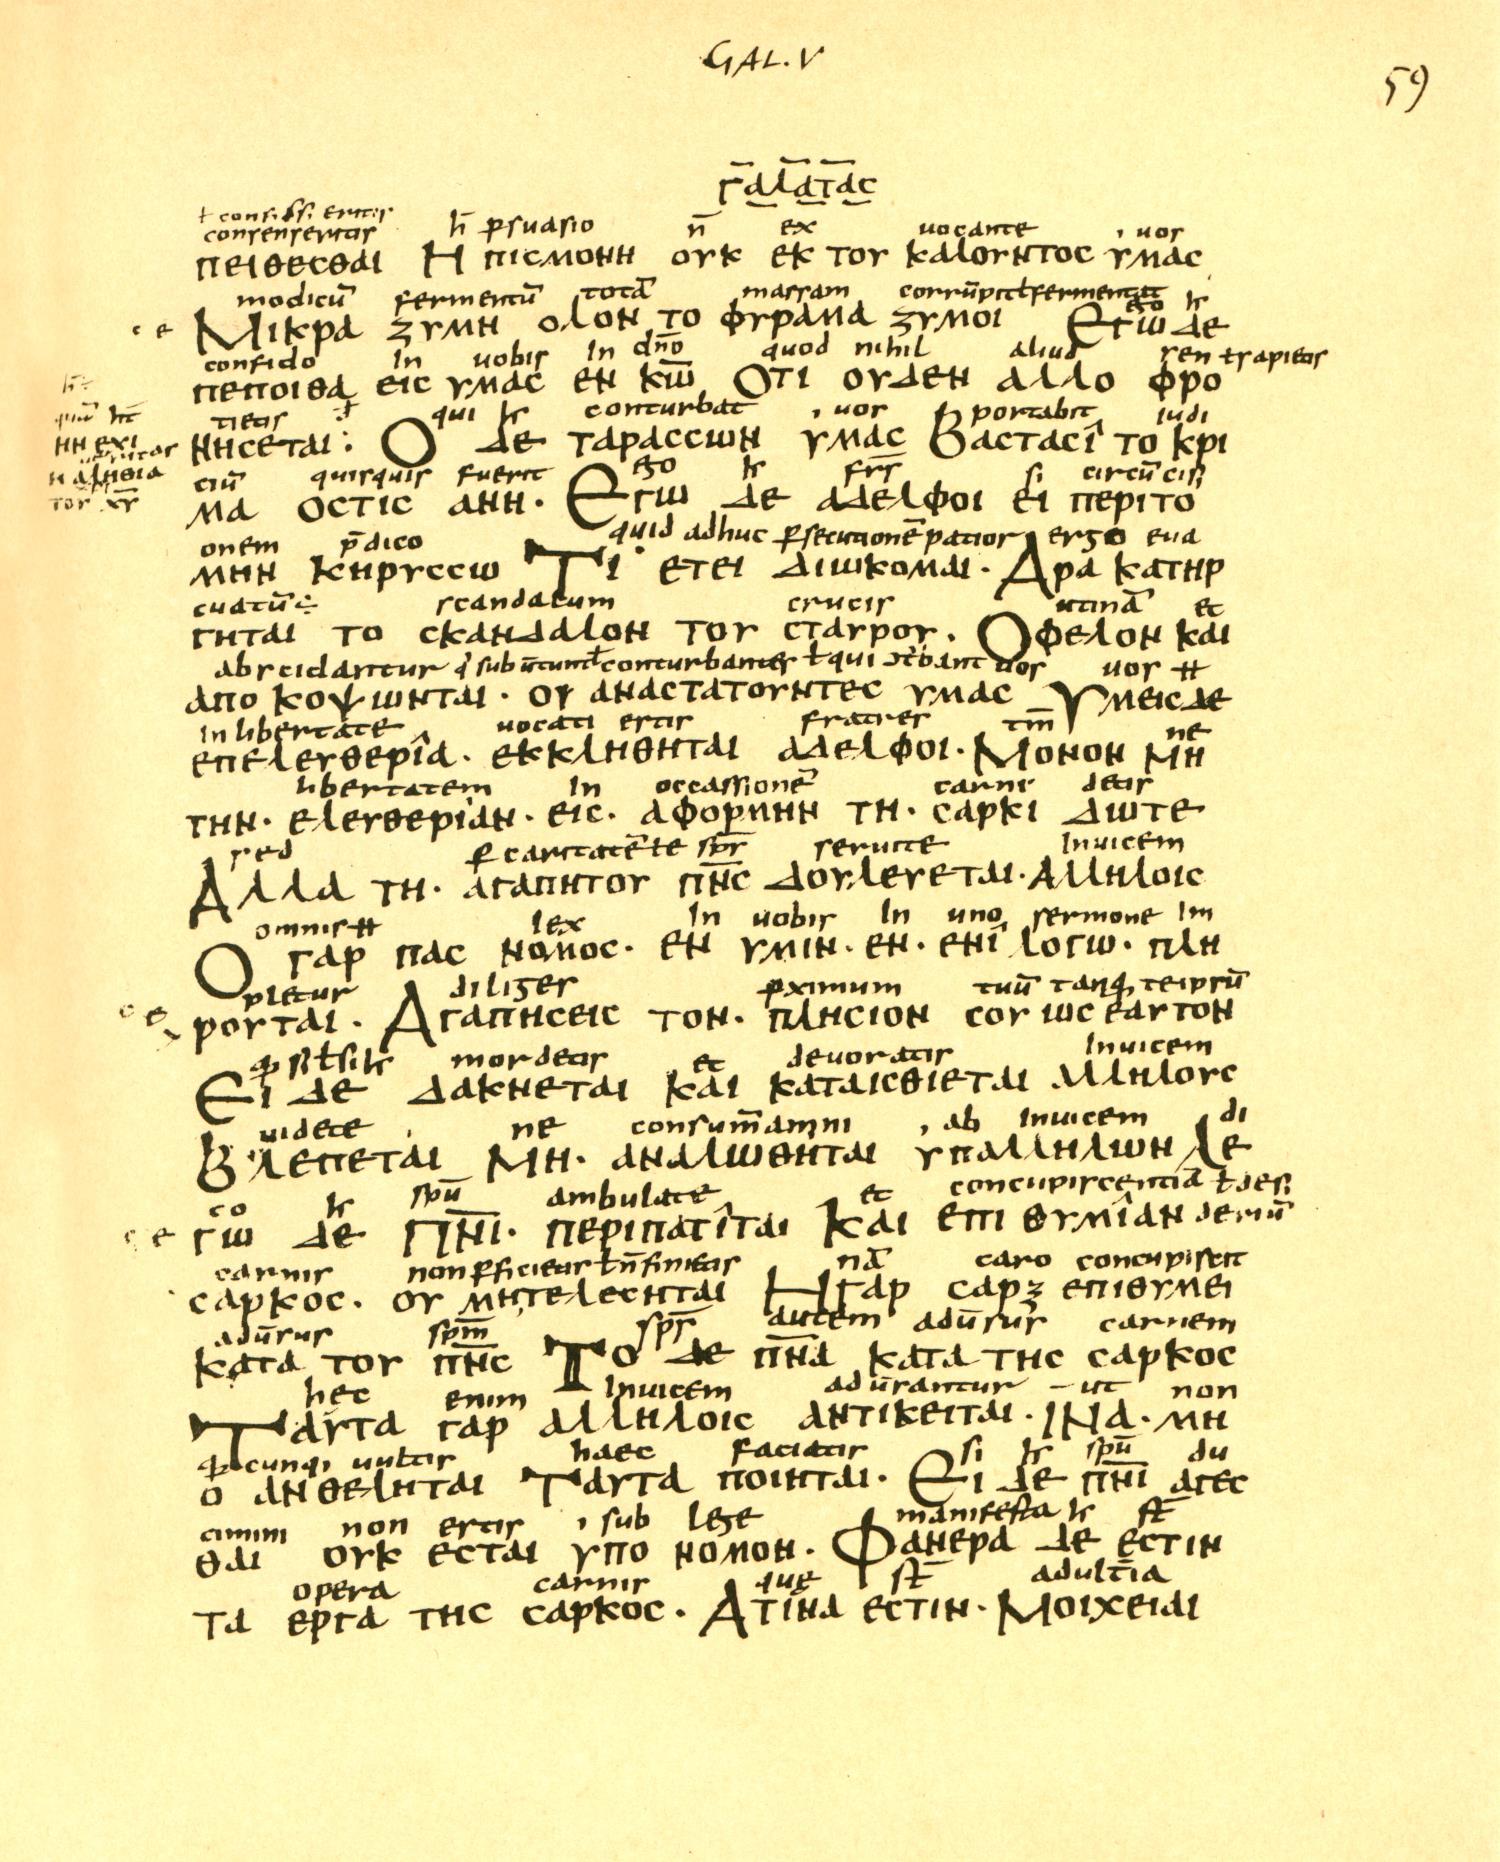 GAL. V
59
γαλατας
ł consensi estis
consensertis h̄ ꝑsuasio n̄ ex uocante uos
πειθεσθαι Η πισμονη ουκ εκ του καλουντος υμας
modicū fermentū totā massam corrūpit ł fermentat ego
Μικρα ζυμη ολον το φυραμα ζυμοι Εγω δε
confido in uobis in dn̄o quod nihil aliud sen ł sapietis
πεποιθα εις υμας εν κω̄ Οτι ουδεν αλλο φρο
tietis qui conturbat uos portabit iudi
νησεται: Ο δε ταρασσων υμας Βαστασι το κρι
ciū quisquis fuerit ego frs̄ si circūcisi
μα οστις ανη· Εγω δε αδελφοι ει περιτο
onem p̄dico quid adhuc ꝑsecutionē patior ergo eua
μην κηρυσσω Τι ετει διωκομαι· Αρα κατηρ
cuatū ÷ scandalum crucis utinā et
γηται το σκανδαλον του σταυρου. Οφελον και
abscidantur conturbantes ł qui uos uos
απο κοψωνται· ου αναστατουντες υμας Υμεις δε
in libertate uocati estis fratres tm̄ ne
επελευθερια· εκκληθηται αδελφοι· Μονον μη
libertatem in occassionē carnis detis
την· ελευθεριαν· εις· αφορμην τη· σαρκι δωτε
sed ꝑ caritatē te sps̄ seruite inuicem
Αλλα τη· αγαπητου πν̄ς δουλευεται· Αλληλοις
omnis lex in uobis in uno sermone im
Ο γαρ πας νομος· εν υμιν· εν· ενι λογω· πλη
pletur diliges ꝓximum tuū tanq, teipsū
ρουται· Αγαπησεις τον· πλησιον σου ως εαυτον
mordetis et deuoratis inuicem
Ει δε δακνεται και καταισθιεται αλληλους
uidete ne consum̄amini ab inuicem di
Βλεπεται Μη· αναλωθηται υπαλληλων Λε
co spū ambulate et concupiscentiā ł desi
γω δε Πν̄ι· περιπατιται Και επι θυμιαν deriū
carnis non ꝑficietis ł n̄ finietis nā caro concupiscit
σαρκος· ου μητελεσηται Η γαρ σαρξ επιθυμει
adūsus spm̄ sps̄ autem adūsus carnem
κατα του πν̄ς Το δε πν̄α κατα της σαρκος
hec enim inuicem adūsantur ut non
Ταυτα γαρ αλληλοις αντικειται· ΙΝα· μη
cunq; uultis haec faciatis si spū du
ο ανθεληται Ταυτα ποιηται· Ει δε πν̄ι αγες
cimini non estis sub lege manifesta st̄
θαι ουκ εσται υπο νομον· Φανερα δε εστιν
opera carnis que st̄ adult̄ia
τα εργα της σαρκος· Ατινα εστιν· Μοιχειαι